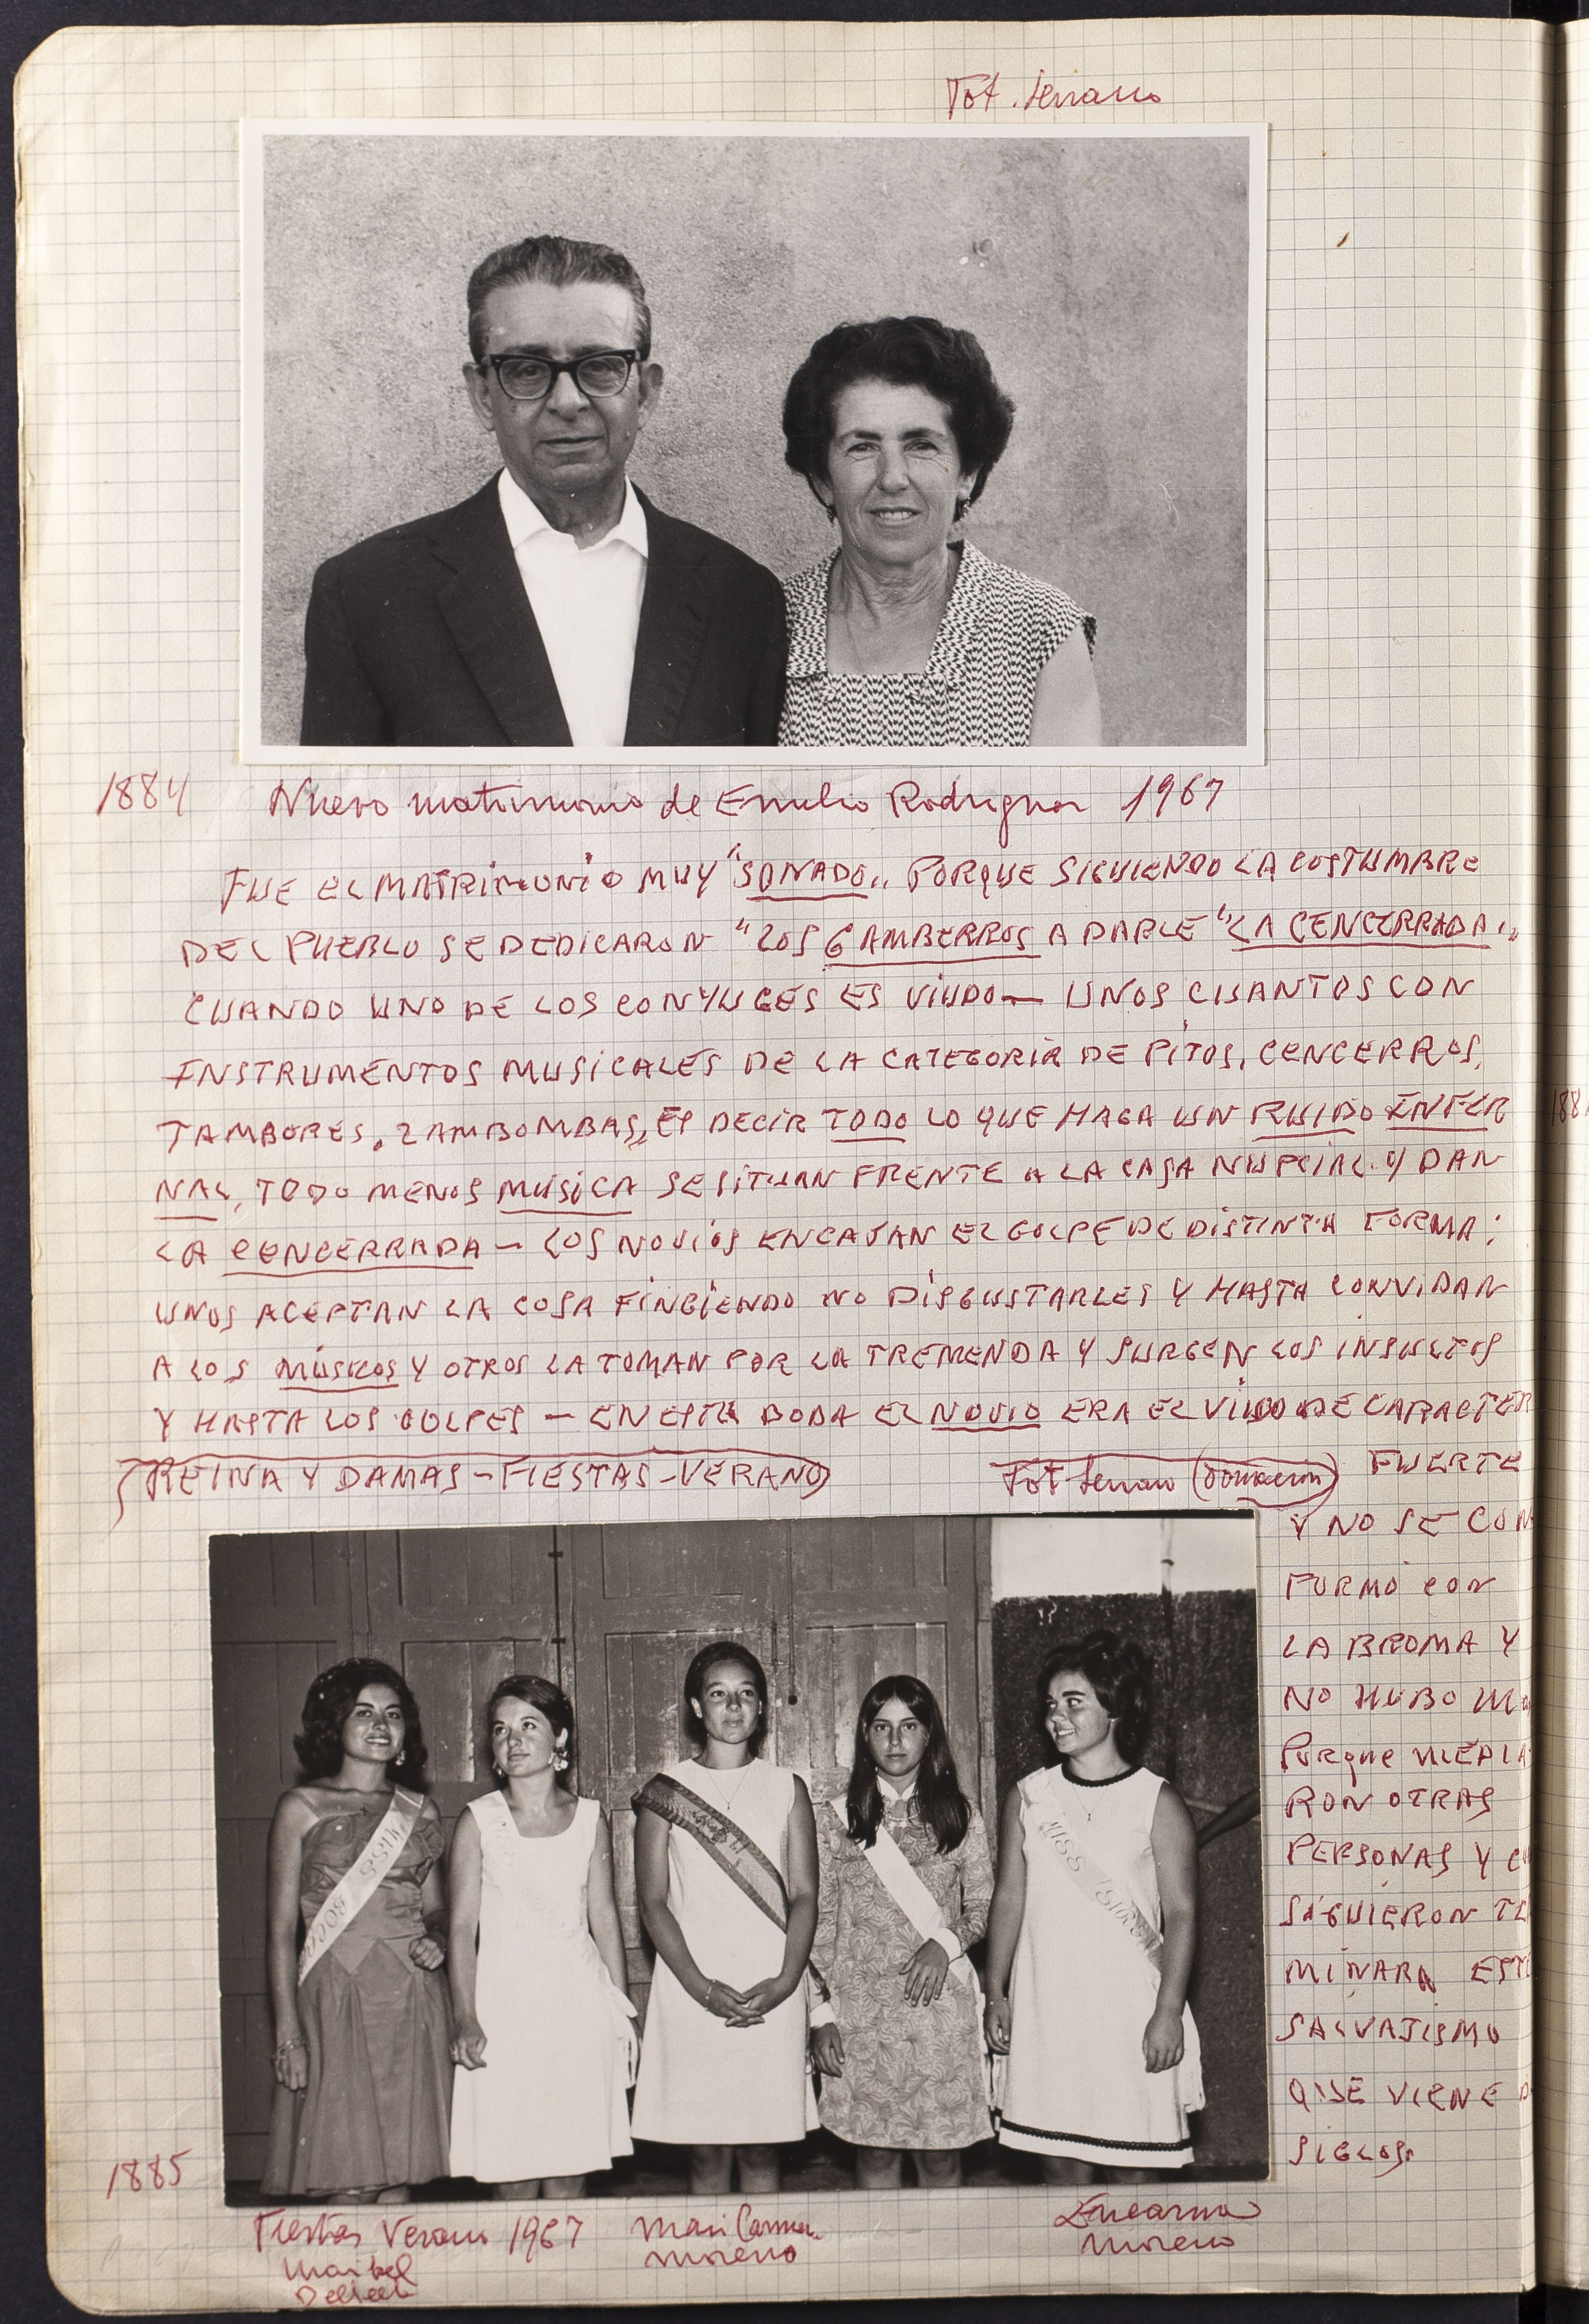 Fot. Serrano
1884 Nuevo matrimonio de Emilio Rodriguez 1967
FUE EL MATRIMONIO MUY "SONADO" PORQUE SIGUIENDO LA COSTUMBRE
DEL PUEBLO SE DEDICARON "LOS GAMBERROS A DARLE "LA CENCERRADA"
CUANDO UNO DE LOS CONYUGES ES VIUDO — UNOS CUANTOS CON
INSTRUMENTOS MUSICALES DE LA CATEGORIA DE PITOS, CENCERROS,
TAMBORES, ZAMBOMBAS, ES DECIR TODO LO QUE HAGA UN RUIDO INFER
NAL, TODO MENOS MÚSICA SE SITUAN FRENTE A LA CASA NUPCIAL Y DAN
LA CENCERRADA — LOS NOVIOS ENCAJAN EL GOLPE DE DISTINTA FORMA;
UNOS ACEPTAN LA COSA FINGIENDO NO DISGUSTARLES Y HASTA CONVIDAN
A LOS MÚSICOS Y OTROS LA TOMAN POR LA TREMENDA Y SURGEN LOS INSULTOS
Y HASTA LOS GOLPES — EN ESTA BODA EL NOVIO ERA EL VIUDO DE CARACTER
FUERTE
Y NO SE CON
FORMÓ CON
LA BROMA Y
NO HUBO
PORQUE MEDIA
RON OTRAS
PERSONAS Y
SIGUIERON
MINARA
SALVAJISMO
QUE VIENE
SIGLOS.
REINA Y DAMAS - FIESTAS - VERANO
Fot Serrano (Donación)
MISS
MISS
1885
Fiestas Verano 1967
Maribel
Mari Carmen
Moreno
Encarna
Moreno
188